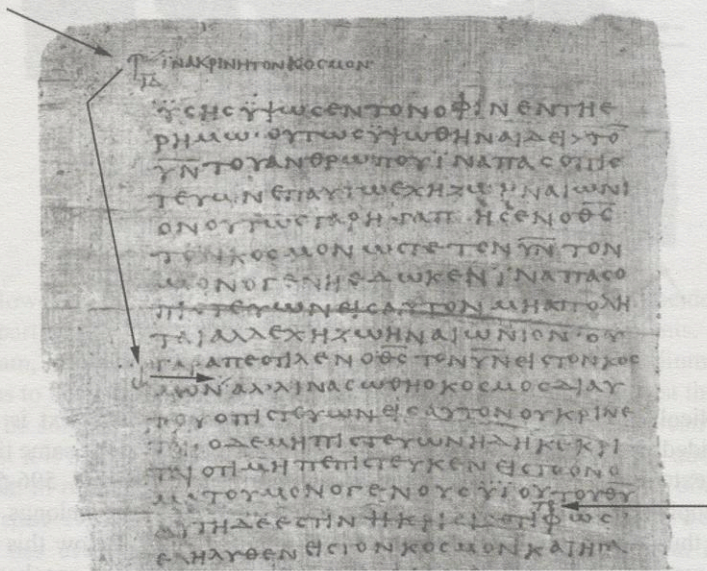 ΙΝΑΚΡΙΝΗΤΟΝΚΟΣΜΟΝ
ΫΣΗΣΫΨΩΣΕΝΤΟΝΟΦΙΝΕΝΤΗΕ
ΡΗΜΩ·ΟΥΤΩΣΥΨΩΘΗΝΑΙΔΕΙΤΟ
Υ̅Ν̅ΤΟΥΑΝΘΡΩΠΟΥΪΝΑΠΑΣΟΠΙΣ
ΤΕΥΩΝΕΠΑΥΤΩΕΧΗΖΩΗΝΑΙΩΝΙ
ΟΝΟΥΤΩΣΓΑΡΗΓΑΠΗΣΕΝΟΘ̅Σ̅
ΤΟΝΚΟΣΜΟΝΩΣΤΕΤΟΝΥ̅Ν̅ΤΟΝ
ΜΟΝΟΓΕΝΗΕΔΩΚΕΝΪΝΑΠΑΣΟ
ΠΙΣΤΕΥΩΝΕΙΣΑΥΤΟΝΜΗΑΠΟΛΗ
ΤΑΙΑΛΛΕΧΗΖΩΗΝΑΙΩΝΙΟΝ·ΟΥ
ΓΑΡΑΠΕΣΤΙΛΕΝΟΘ̅Σ̅ΤΟΝΥ̅Ν̅ΕΙΣΤΟΝΚΟΣ
ΜΟΝΑΛΛΙΝΑΣΩΘΗΟΚΟΣΜΟΣΔΙΑΥ
ΤΟΥΟΠΙΣΤΕΥΩΝΕΙΣΑΥΤΟΝΟΥΚΡΙΝΕ
ΤΑΙ·ΟΔΕΜΗΠΙΣΤΕΥΩΝΗΔΗΚΕΚΡΙ
ΤΑΙΟΤΙΜΗΠΕΠΙΣΤΕΥΚΕΝΕΙΣΤΟΟΝΟ
ΜΑΤΟΥΜΟΝΟΓΕΝΟΥΣΥΪΟΥΤΟΥΘ̅Υ̅
ΤΟ
ΑΥΤΗΔΕΕΣΤΙΝΗΚΡΙΣΙΣΟΤΙΦΩΣ
ΕΛΗΛΥΘΕΝΕΙΣΤΟΝΚΟΣΜΟΝΚΑΙΗΓΑ